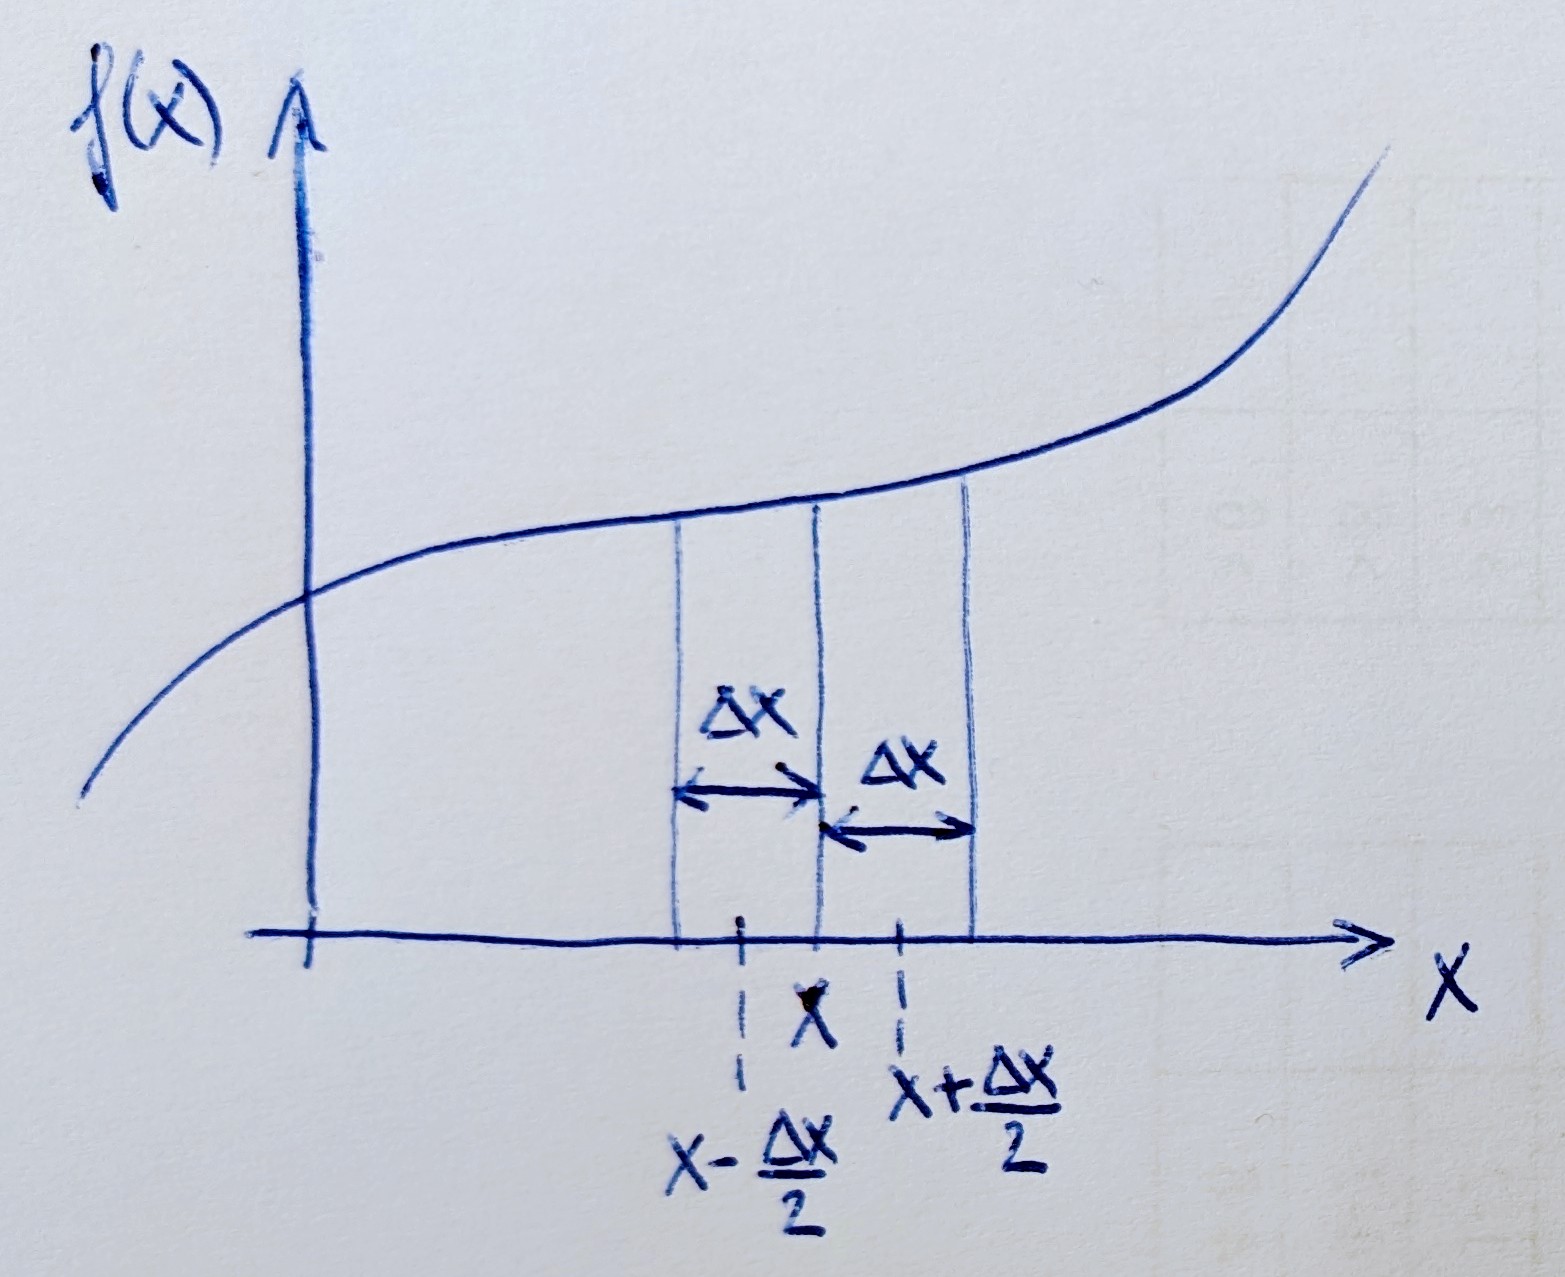 f(x)
Δx
Δx
x
x
x+Δx/2
x-Δx/2